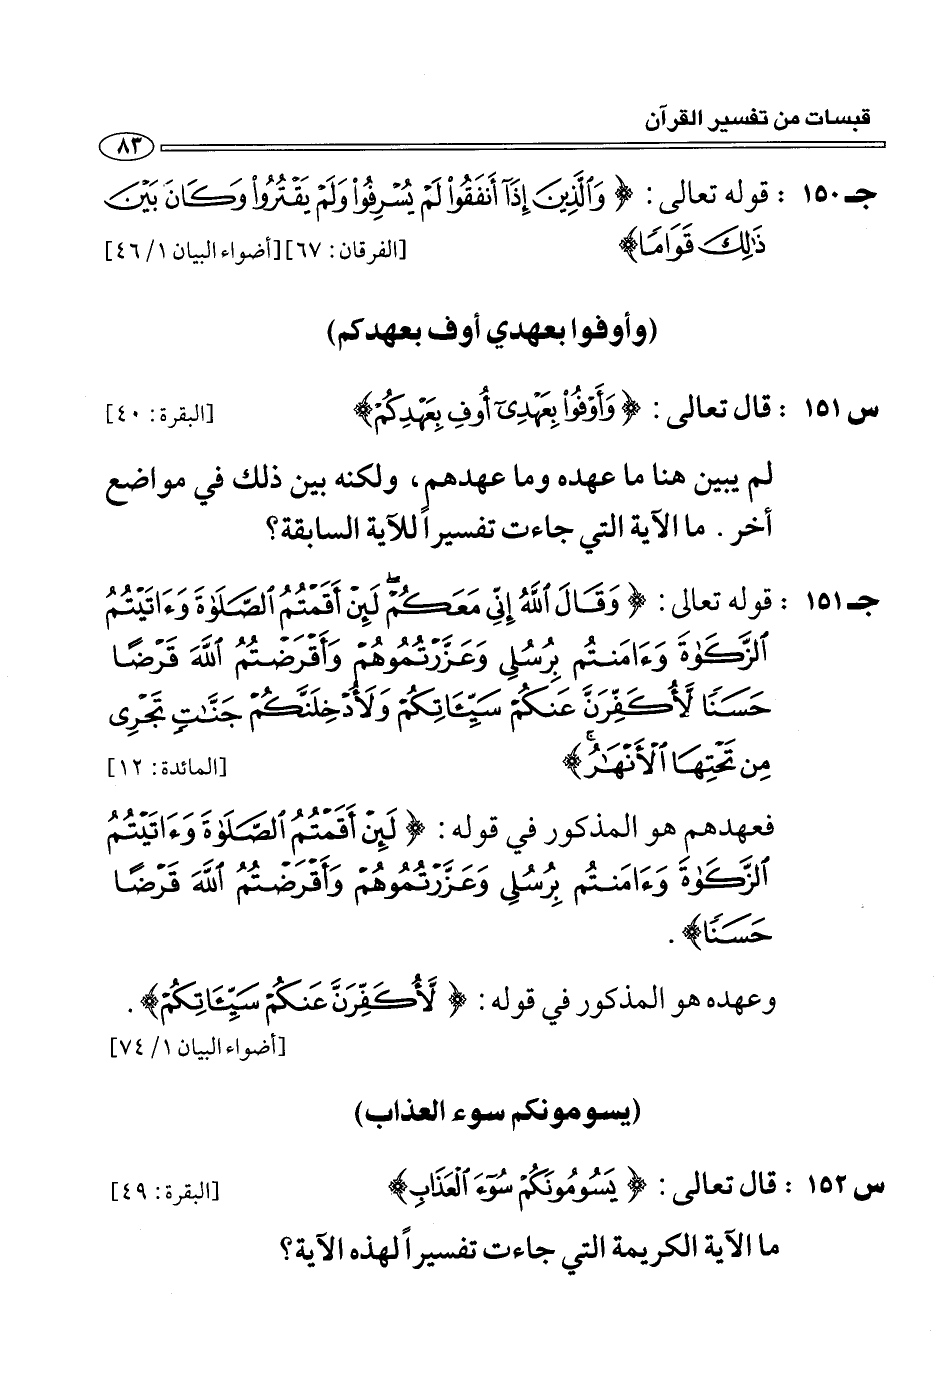 قبسات من تفسير القرآن
٨٣
جـ ١٥٠ : قوله تعالى: ﴿ وَالَّذِينَ إِذَا أَنفَقُوا لَمْ يُسْرِفُوا وَلَمْ يَقْتُرُوا وَكَانَ بَيْنَ
ذَٰلِكَ قَوَامًا﴾ [الفرقان: ٦٧][أضواء البيان ٤٦/١]
(وأوفوا بعهدي أوف بعهدكم)
س ١٥١ : قال تعالى: ﴿ وَأَوْفُوا بِعَهْدِي أُوفِ بِعَهْدِكُمْ﴾ [البقرة: ٤٠]
لم يبين هنا ما عهده وما عهدهم، ولكنه بين ذلك في مواضع
أخر. ما الآية التي جاءت تفسيراً للآية السابقة؟
جـ ١٥١ : قوله تعالى: ﴿ وَقَالَ اللَّهُ إِنِّي مَعَكُمْ ۖ لَئِنْ أَقَمْتُمُ الصَّلَوٰةَ وَءَاتَيْتُمُ
الزَّكَوٰةَ وَءَامَنتُم بِرُسُلِي وَعَزَّرْتُمُوهُمْ وَأَقْرَضْتُمُ اللَّهَ قَرْضًا
حَسَنًا لَّأُكَفِّرَنَّ عَنكُمْ سَيِّئَاتِكُمْ وَلَأُدْخِلَنَّكُمْ جَنَّٰتٍ تَجْرِي
مِن تَحْتِهَا الْأَنْهَٰرُ ۚ﴾ [المائدة: ١٢]
فعهدهم هو المذكور في قوله: ﴿ لَئِنْ أَقَمْتُمُ الصَّلَوٰةَ وَءَاتَيْتُمُ
الزَّكَوٰةَ وَءَامَنتُم بِرُسُلِي وَعَزَّرْتُمُوهُمْ وَأَقْرَضْتُمُ اللَّهَ قَرْضًا
حَسَنًا﴾.
وعهده هو المذكور في قوله: ﴿ لَّأُكَفِّرَنَّ عَنكُمْ سَيِّئَاتِكُمْ﴾.
[أضواء البيان ٧٤/١]
(يسومونكم سوء العذاب)
س ١٥٢ : قال تعالى: ﴿ يَسُومُونَكُمْ سُوٓءَ الْعَذَابِ﴾ [البقرة: ٤٩]
ما الآية الكريمة التي جاءت تفسيراً لهذه الآية؟